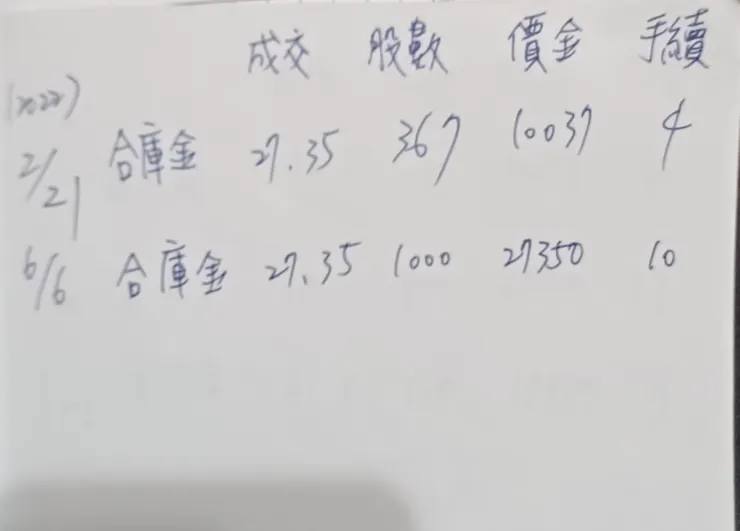 成交 股數 價金 手續
(2022)
2/21 合庫金 27.35 367 10037 4
6/6 合庫金 27.35 1000 27350 10